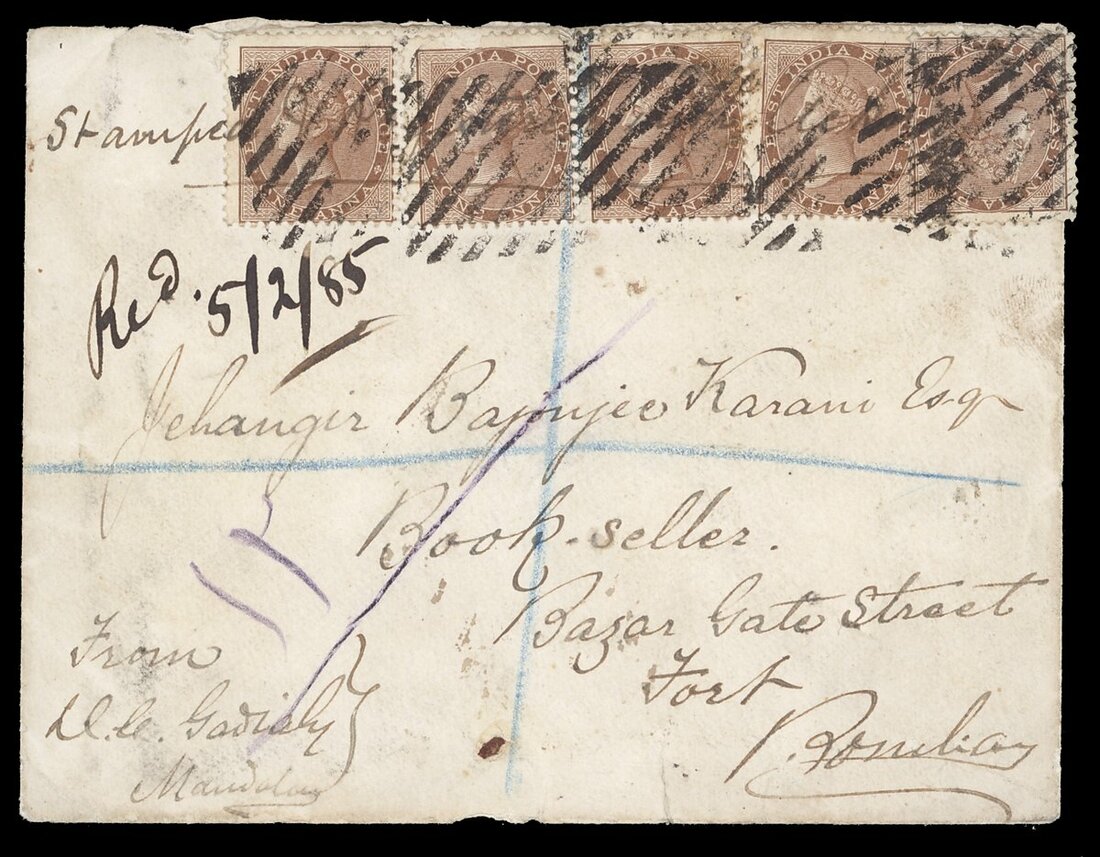 EAST INDIA POSTAGE ONE ANNA
EAST INDIA POSTAGE ONE ANNA
EAST INDIA POSTAGE ONE ANNA
EAST INDIA POSTAGE ONE ANNA
EAST INDIA POSTAGE ONE ANNA
Stamped
Recd. 5/2/85
Jehangir Bejonjee Karani Esqr
Book-seller.
Bazar Gate Street
Fort
Bombay
From
Mandalay